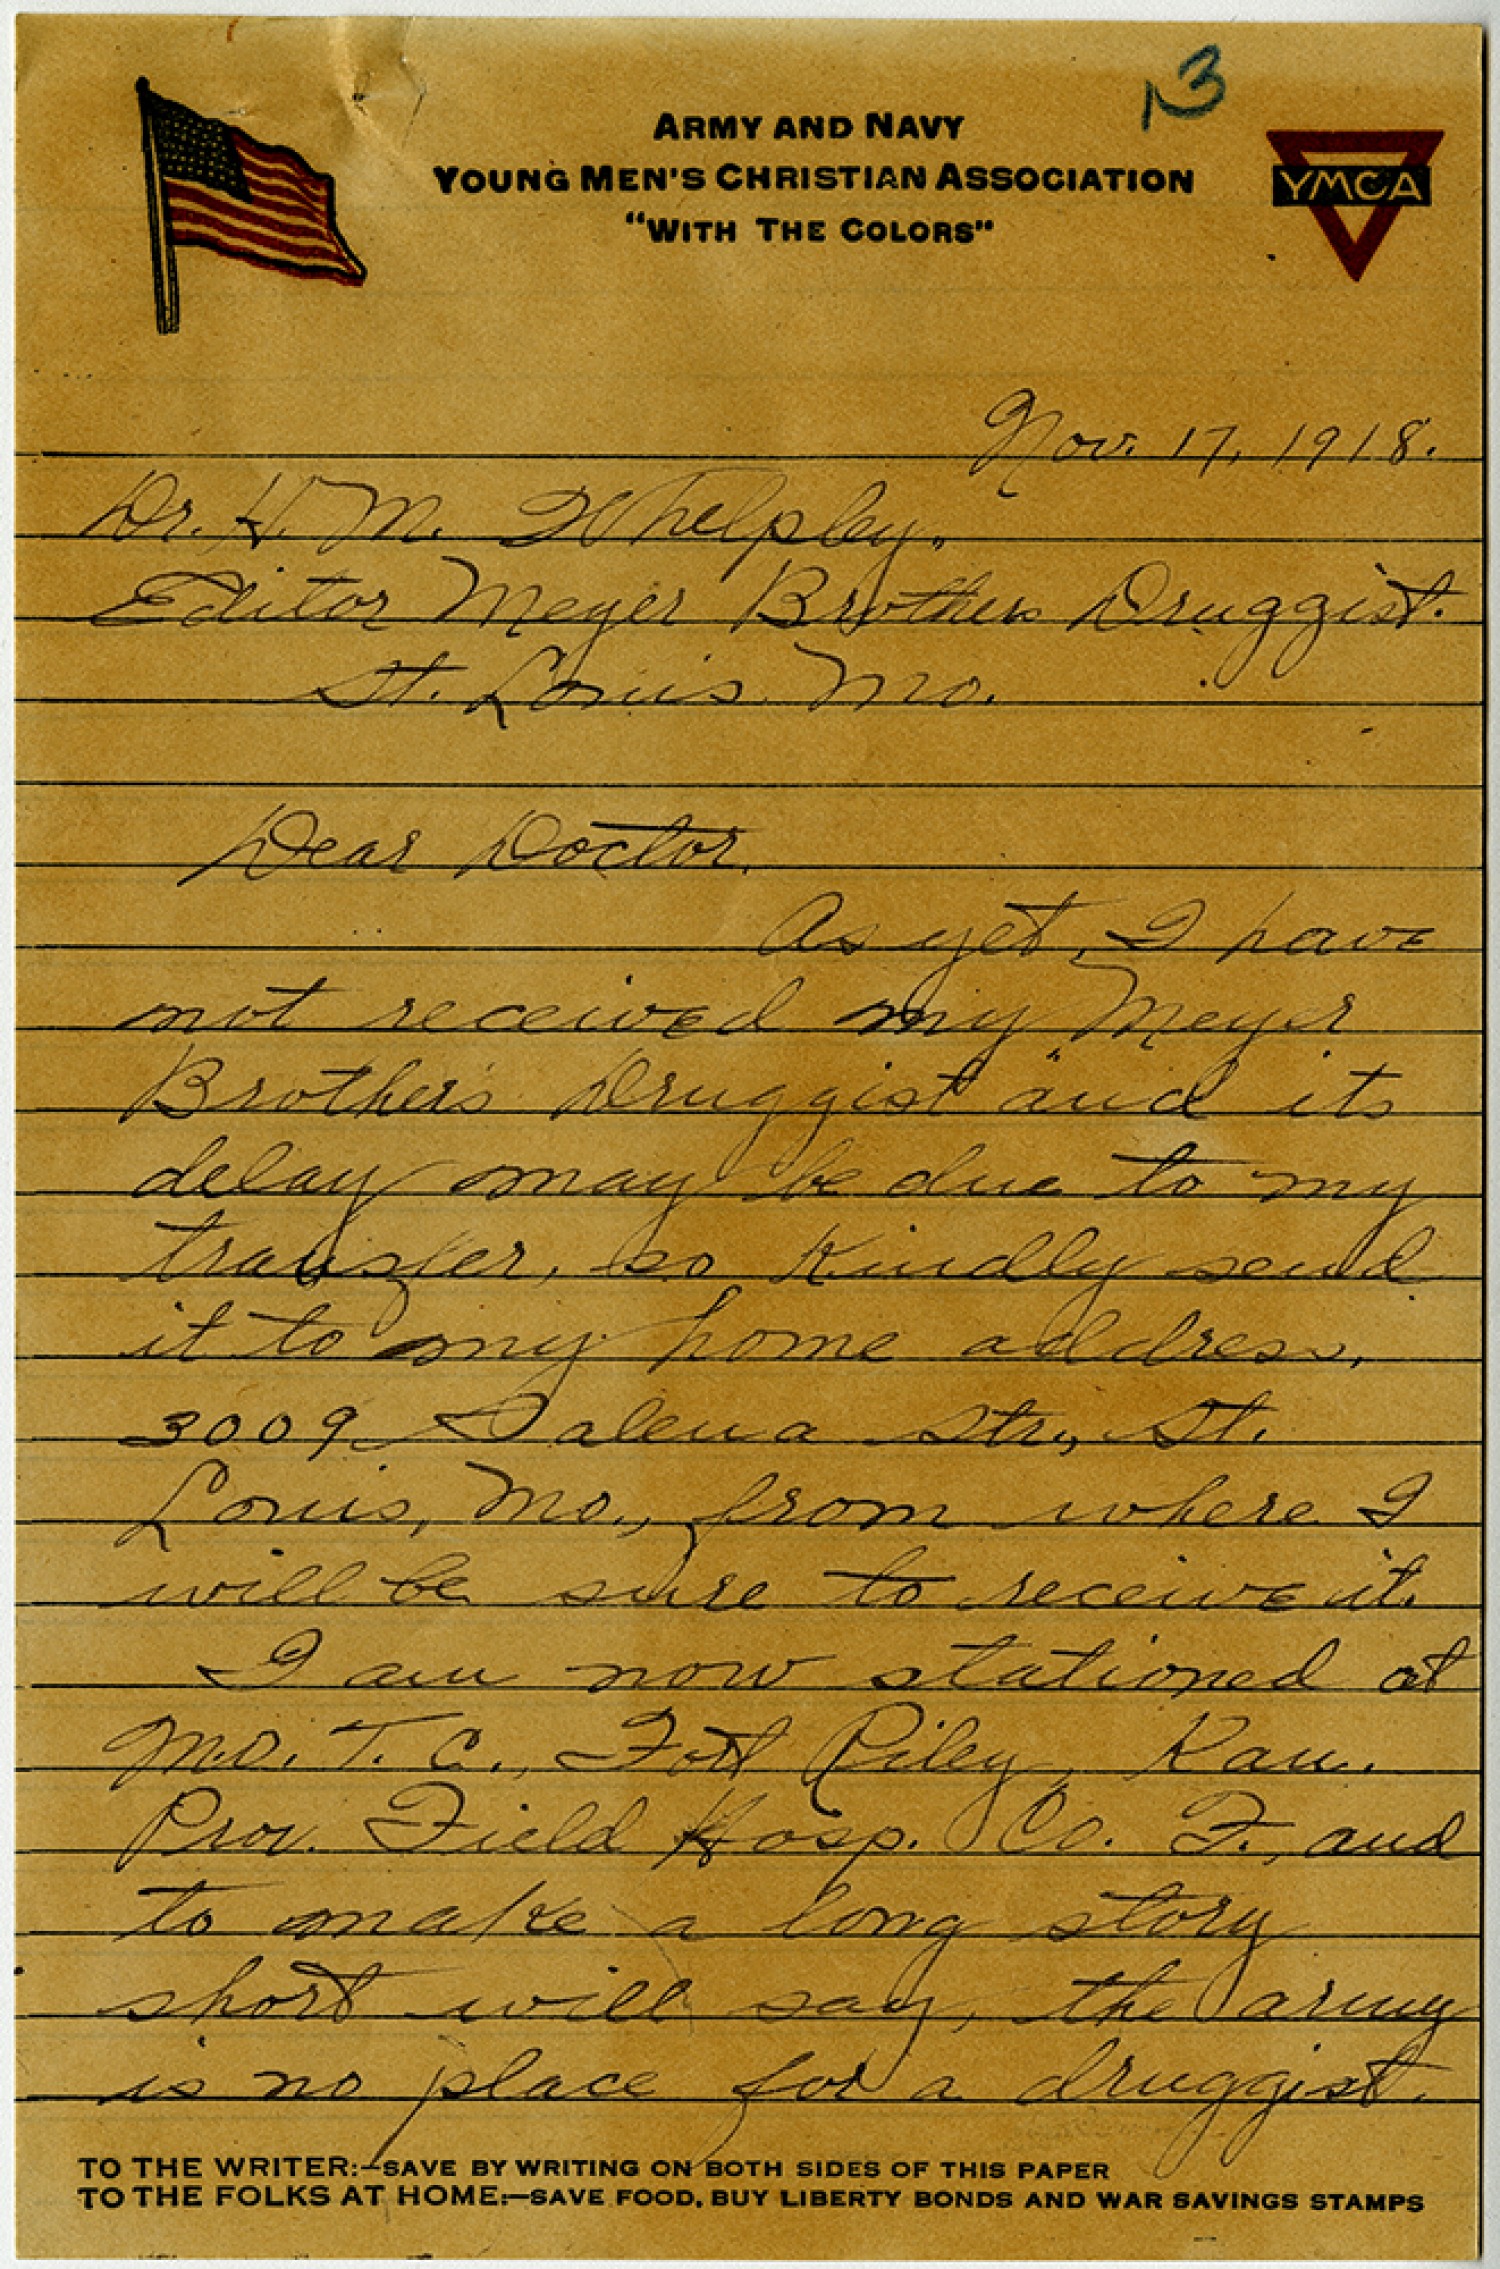 13
ARMY AND NAVY
YOUNG MEN'S CHRISTIAN ASSOCIATION
"WITH THE COLORS"
YMCA
Nov. 17, 1918.
Dr. H. M. Whelpley,
Editor Meyer Brothers Druggist.
St. Louis Mo.
Dear Doctor,
As yet, I have
not received my "Meyer
Brother's Druggist" and its
delay may be due to my
transfer, so kindly send
it to my home address,
3009 Salena Str., St.
Louis, Mo., from where I
will be sure to receive it.
I am now stationed at
M.O.T.C., Fort Riley, Kan.
Prov. Field Hosp. Co. F., and
to make a long story
short will say, the army
is no place for a druggist.
TO THE WRITER:—SAVE BY WRITING ON BOTH SIDES OF THIS PAPER
TO THE FOLKS AT HOME:—SAVE FOOD, BUY LIBERTY BONDS AND WAR SAVINGS STAMPS